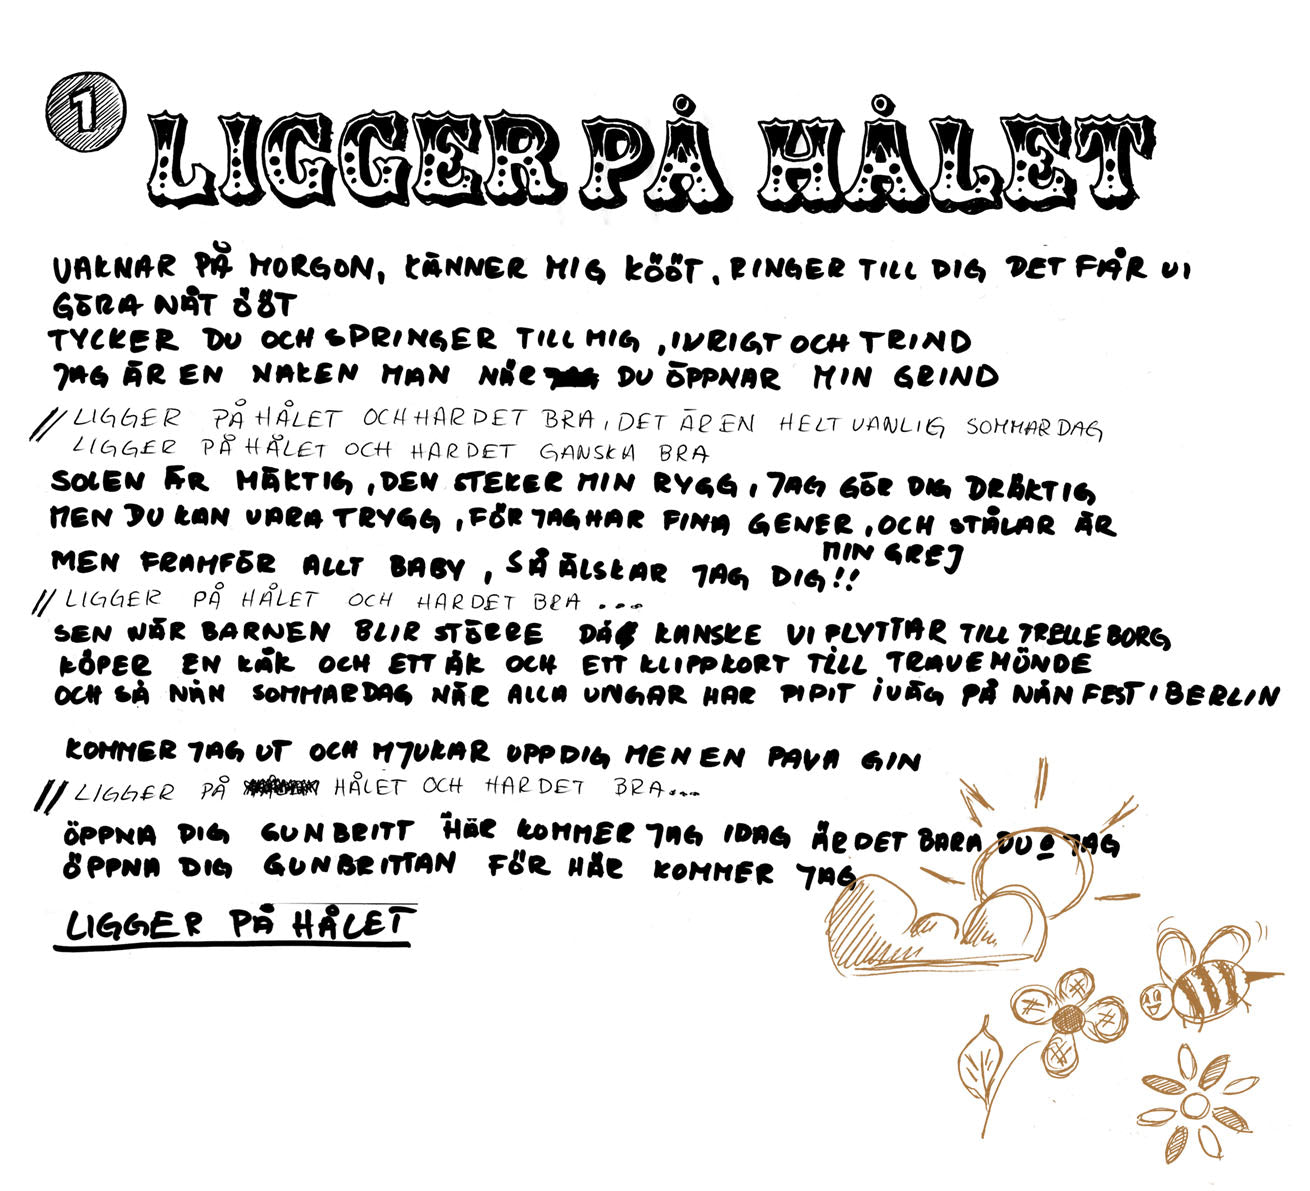 1
LIGGER PÅ HÅLET
VAKNAR PÅ MORGON, KÄNNER MIG KÖÖT, RINGER TILL DIG DET FÅR VI
GÖRA NÅT ÖÖT
TYCKER DU OCH SPRINGER TILL MIG, IVRIGT OCH TRIND
JAG ÄR EN NAKEN MAN NÄR DU ÖPPNAR MIN GRIND
// LIGGER PÅ HÅLET OCH HAR DET BRA, DET ÄR EN HELT VANLIG SOMMARDAG
LIGGER PÅ HÅLET OCH HAR DET GANSKA BRA
SOLEN ÄR MÄKTIG, DEN STEKER MIN RYGG, JAG GÖR DIG DRÄKTIG
MEN DU KAN VARA TRYGG, FÖR JAG HAR FINA GENER, OCH STÅLAR ÄR
MIN GREJ
MEN FRAMFÖR ALLT BABY, SÅ ÄLSKAR JAG DIG!!
// LIGGER PÅ HÅLET OCH HAR DET BRA ...
SEN NÄR BARNEN BLIR STÖRRE DÅ KANSKE VI FLYTTAR TILL TRELLEBORG
KÖPER EN KÅK OCH ETT ÅK OCH ETT KLIPPKORT TILL TRAVEMÜNDE
OCH SÅ NÅN SOMMARDAG NÄR ALLA UNGAR HAR PIPIT IVÄG PÅ NÅN FEST I BERLIN
KOMMER JAG UT OCH MJUKAR UPP DIG MEN EN PAVA GIN
// LIGGER PÅ HÅLET OCH HAR DET BRA...
ÖPPNA DIG GUNBRITT HÄR KOMMER JAG IDAG ÄR DET BARA DU O JAG
ÖPPNA DIG GUNBRITTAN FÖR HÄR KOMMER JAG
LIGGER PÅ HÅLET